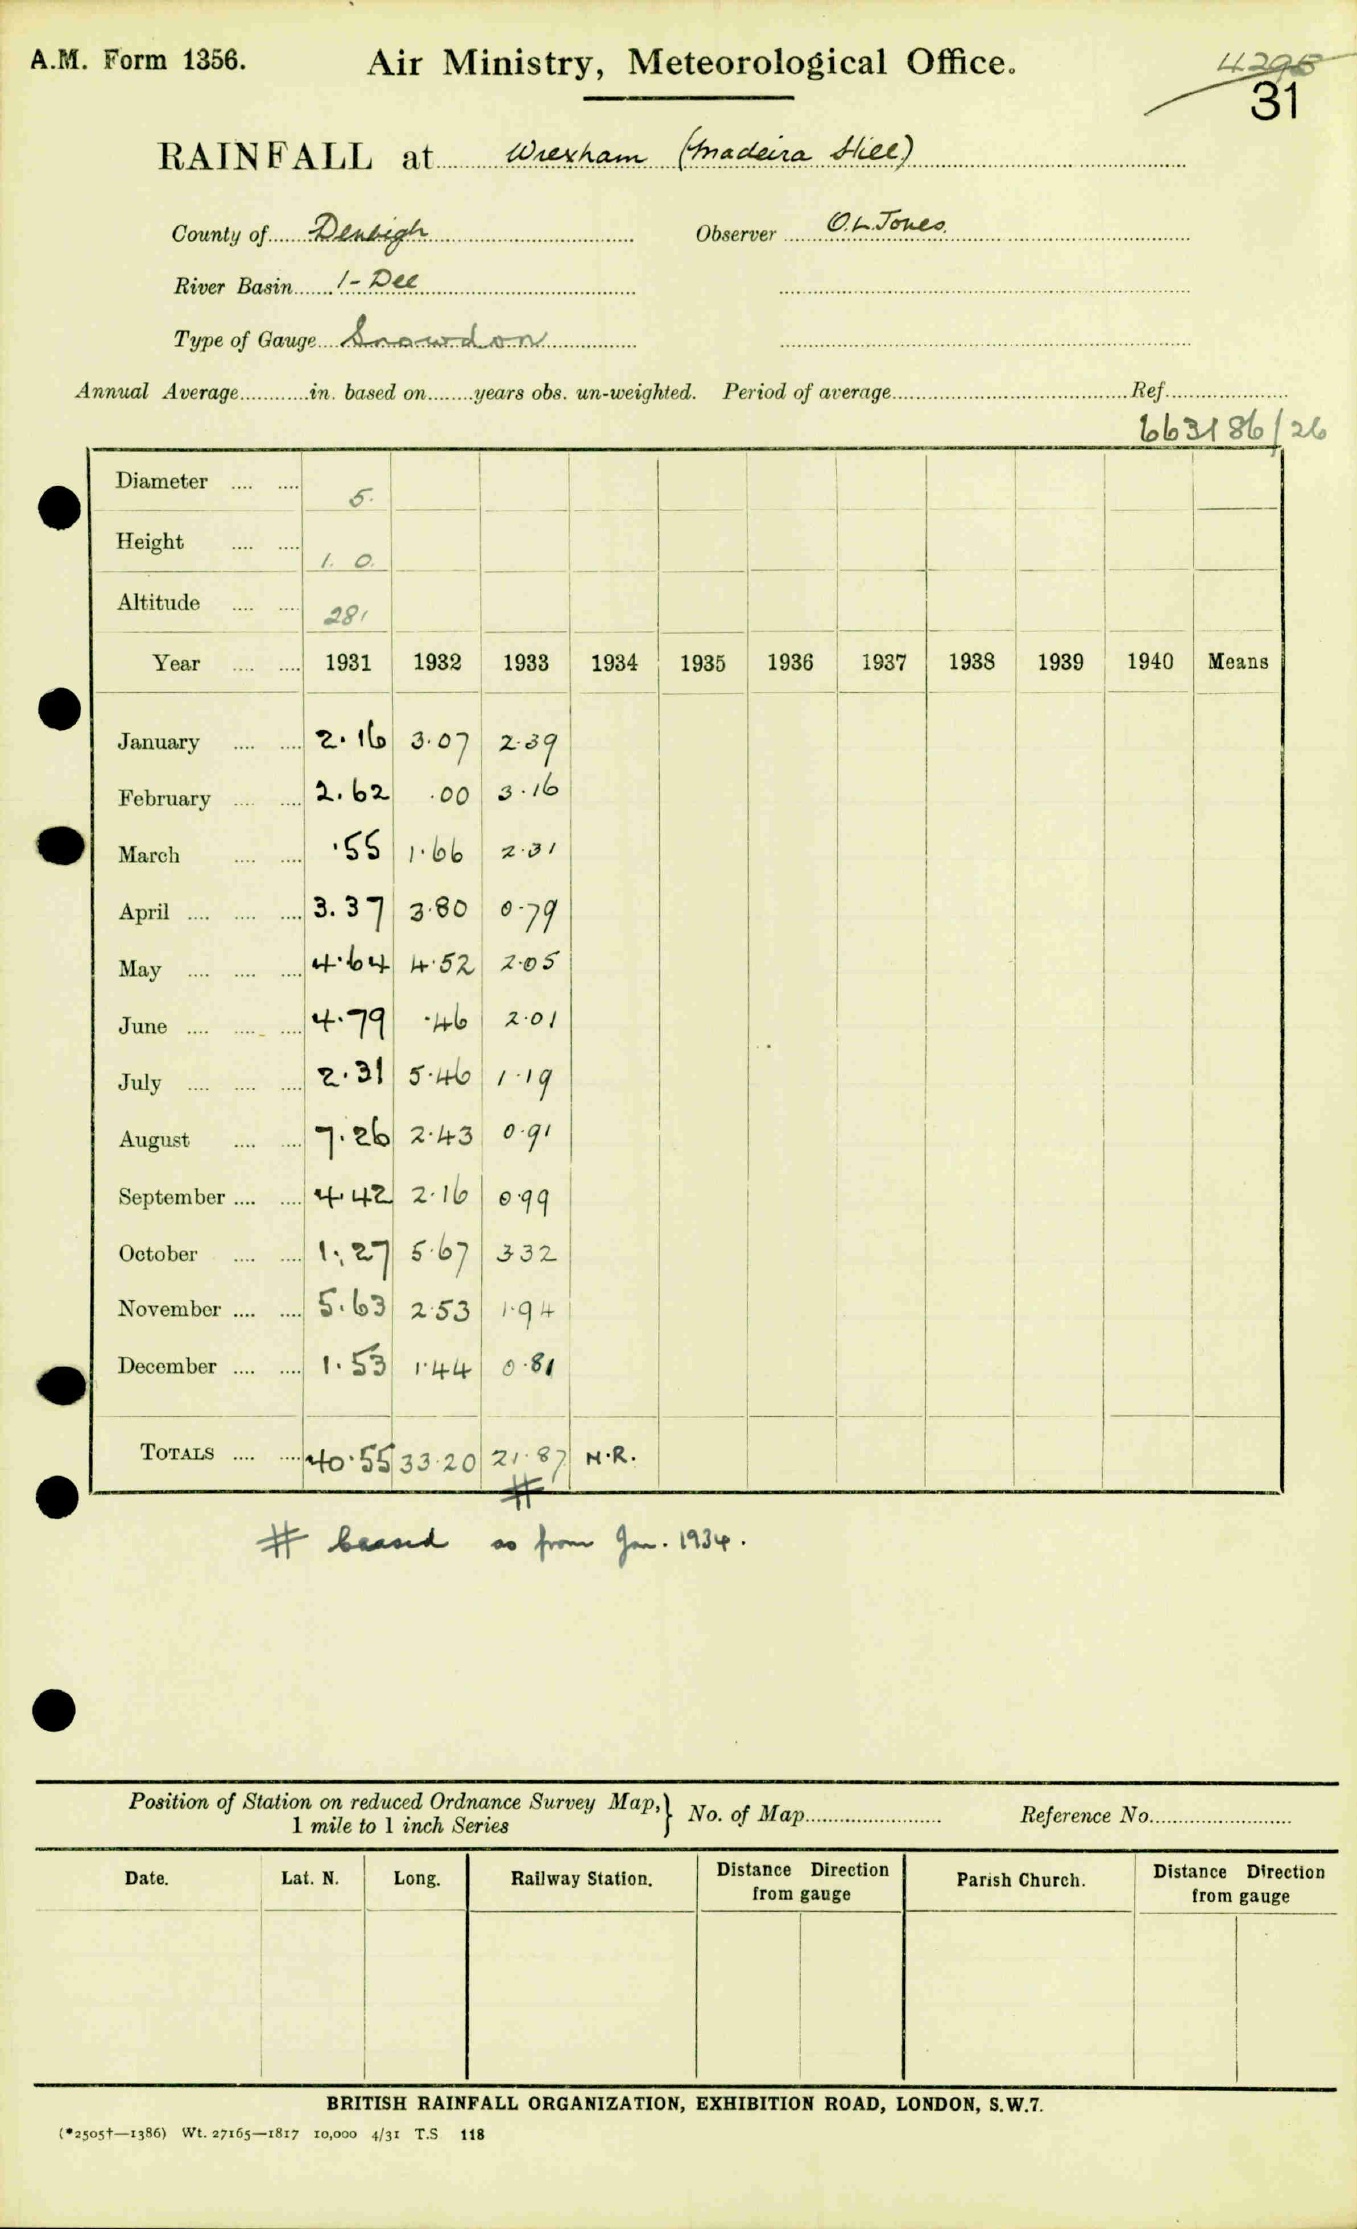 A.M. Form 1356.
Air Ministry, Meteorological Office.
4295
31
RAINFALL at Wrexham (Madeira Hill)
County of Denbigh Observer O.L. Jones.
River Basin 1 - Dee
Type of Gauge Snowdon
Annual Average............in. based on........years obs. un-weighted. Period of average............Ref............
663186/26
Diameter .... .... 5.
Height .... .... 1. 0.
Altitude .... .... 281
Year .... .... 1931 1932 1933 1934 1935 1936 1937 1938 1939 1940 Means
January .... .... 2.16 3.07 2.39
February .... .... 2.62 .00 3.16
March .... .... .55 1.66 2.31
April .... .... .... 3.37 3.80 0.79
May .... .... .... 4.64 4.52 2.05
June .... .... .... 4.79 .46 2.01
July .... .... .... 2.31 5.46 1.19
August .... .... 7.26 2.43 0.91
September .... .... 4.42 2.16 0.99
October .... .... 1.27 5.67 3.32
November .... .... 5.63 2.53 1.94
December .... .... 1.53 1.44 0.81
TOTALS .... .... 40.55 33.20 21.87 N.R.
#
# Ceased as from Jan. 1934.
Position of Station on reduced Ordnance Survey Map, } No. of Map............ Reference No............
1 mile to 1 inch Series
Date. Lat. N. Long. Railway Station. Distance Direction from gauge Parish Church. Distance Direction from gauge
BRITISH RAINFALL ORGANIZATION, EXHIBITION ROAD, LONDON, S.W.7.
(*2505†—1386) Wt. 27165—1817 10,000 4/31 T.S 118